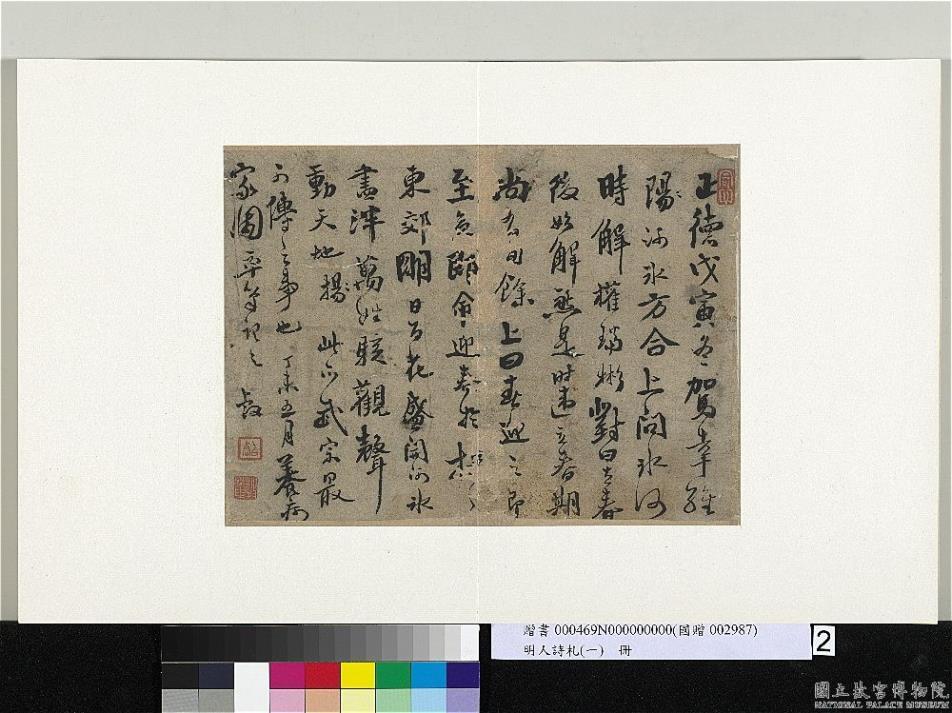 正德戊寅冬駕幸維
陽河冰方合上問冰何
時解權璫彬對曰立春
後始解然是時违立春期
尚有月餘上曰春迎之即
至矣頤命迎春於
東郊明日百花盛開河冰
盡泮萬姓駭觀聲
動天地揚 此亦武宗最
可傳之事也 丁未五月養病
家園卒筆記之
贈書 000469N000000000(國贈 002987)
明人詩札(一) 冊
2
國立故宮博物院
NATIONAL PALACE MUSEUM